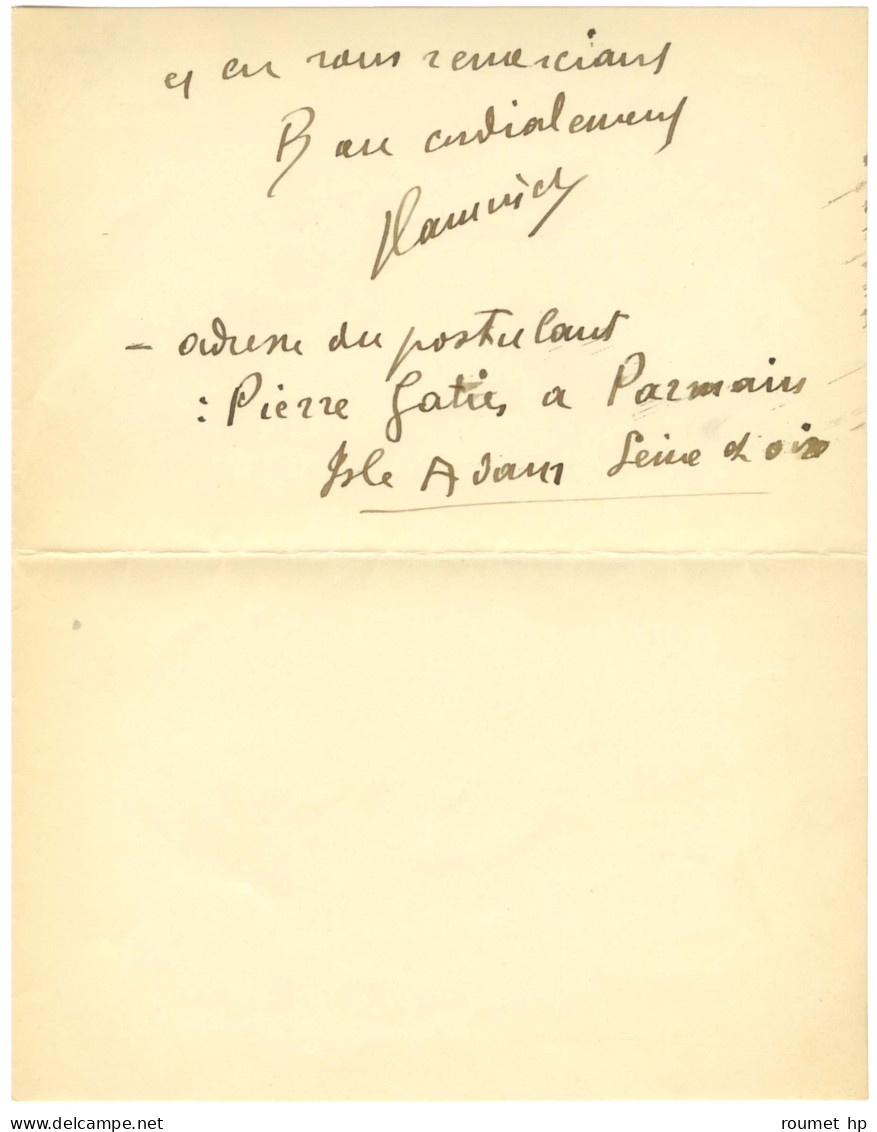 et en vous remerciant
Bien cordialement
Vlaminck
- adresse du postulant
: Pierre Gatier a Parmain
Isle Adam Seine et oise
www.delcampe.net
roumet hp